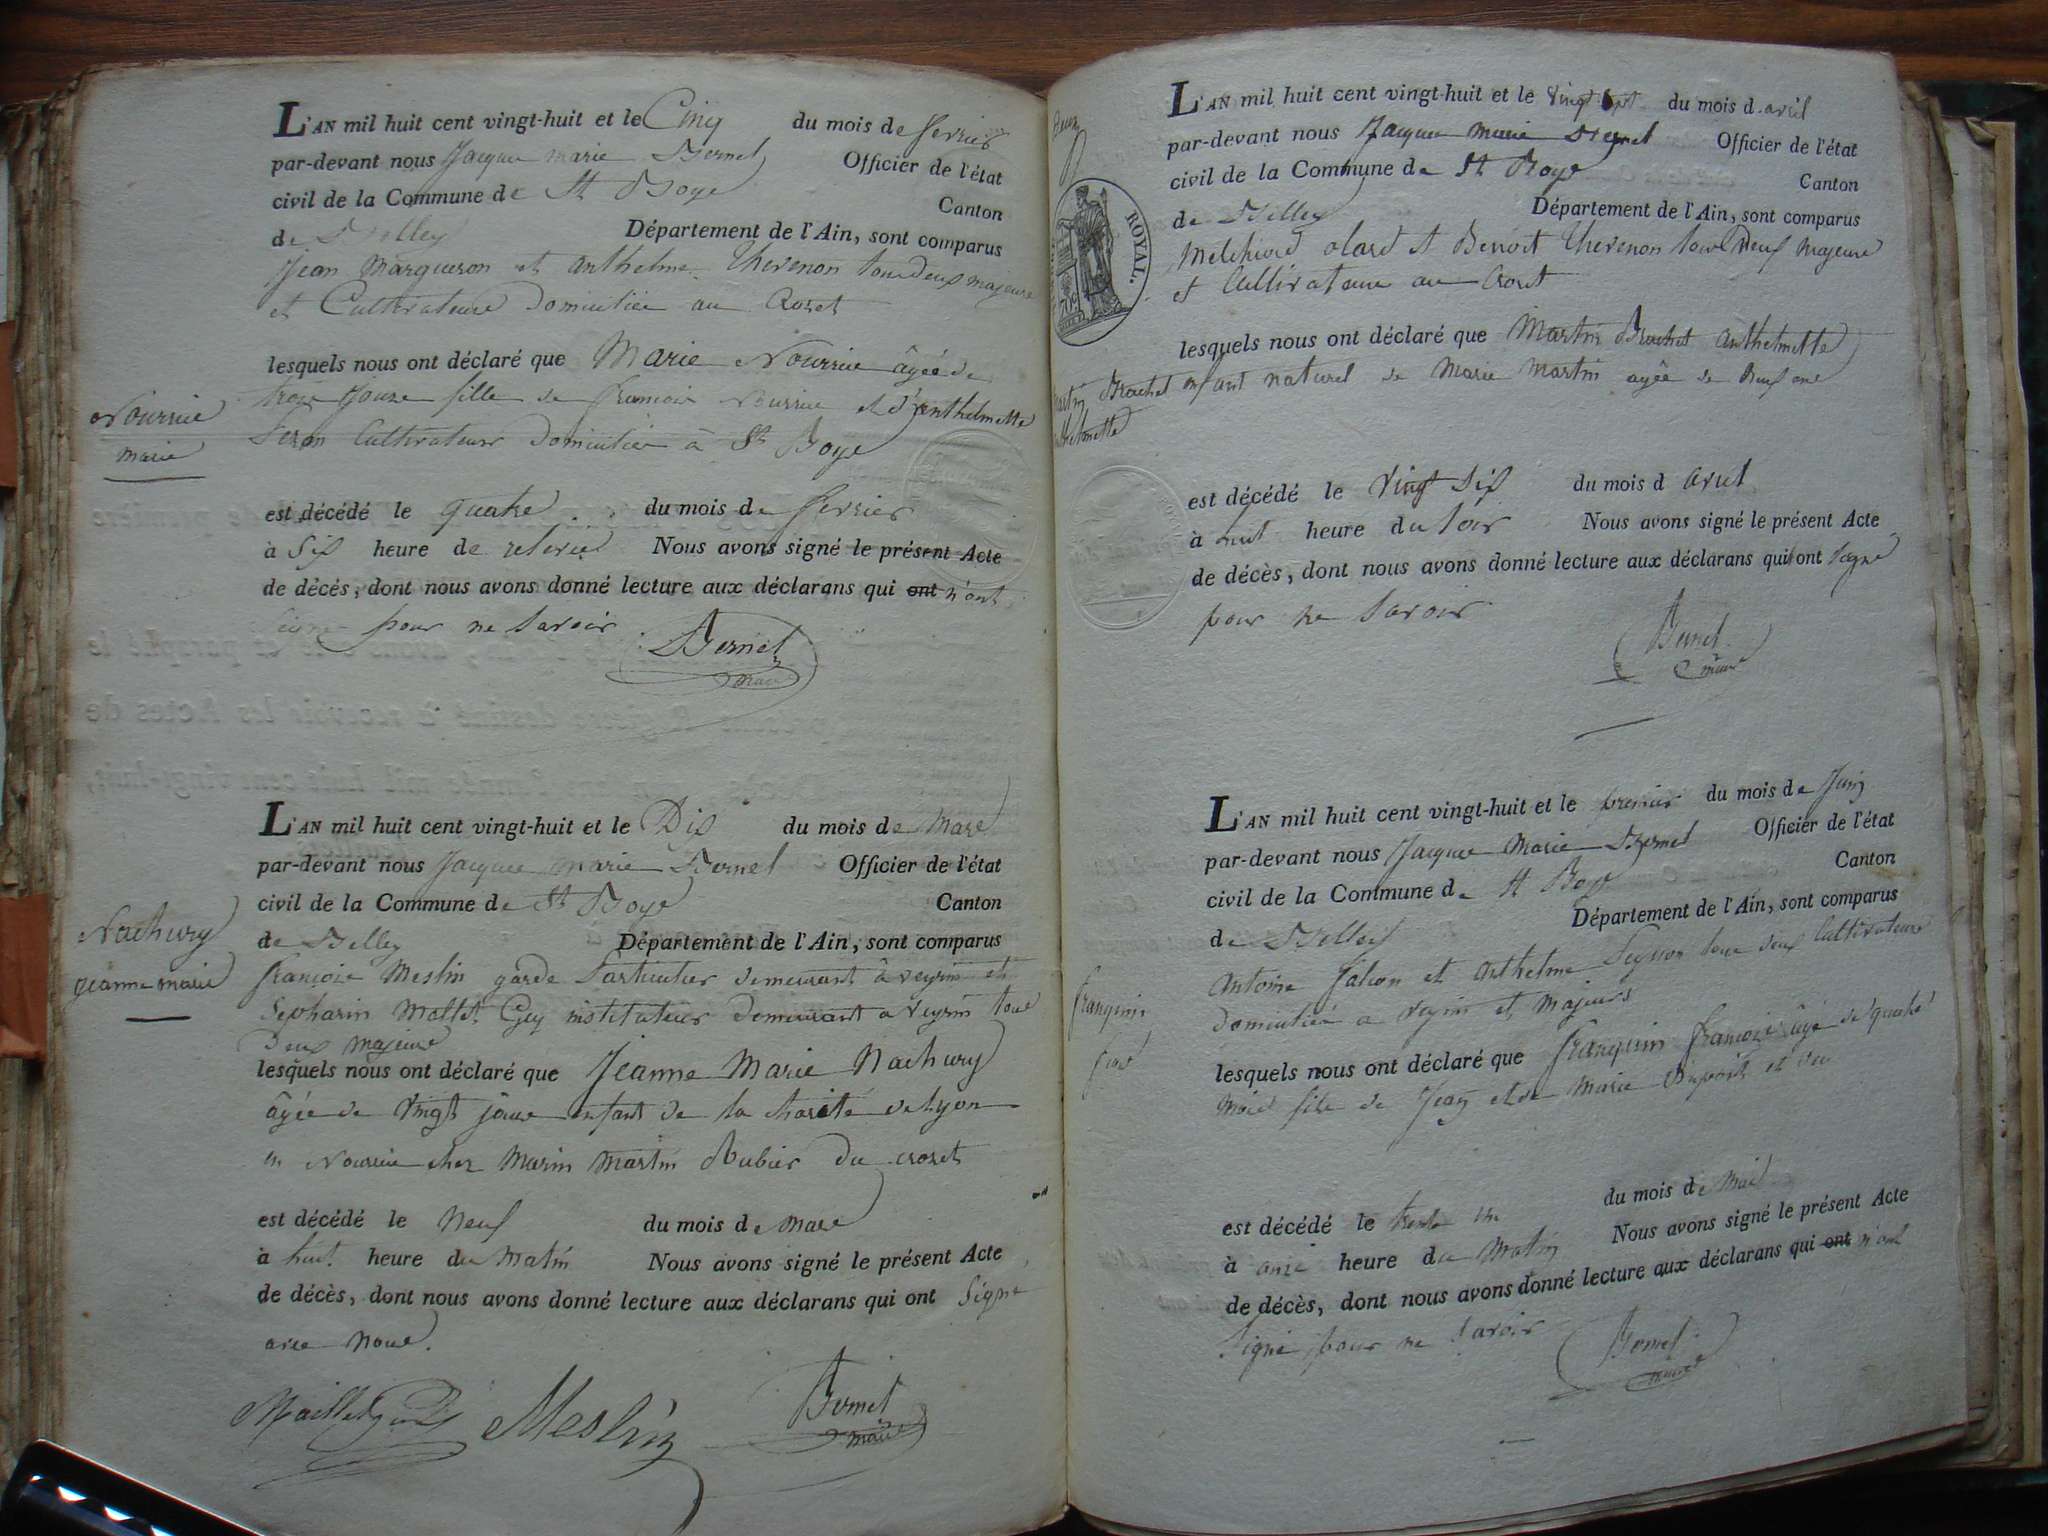 L'AN mil huit cent vingt-huit et le Cinq du mois de fevrier
par-devant nous Jacque marie Bernel Officier de l'état
civil de la Commune de St Boye Canton
de Belley Département de l'Ain, sont comparus
Jean Margueron et anthelme Thevenon tous deux majeure
et Cultivateure Domiciliée au Crozet
lesquels nous ont déclaré que Marie Nourrice âgée de
trois jours fille de francois Nourrice et d'anthelmette
Cultivateur Domiciliée à St Boye
Nourrice
marie
est décédé le quatre du mois de fevrier
à Six heure de Nous avons signé le présent Acte
de décès, dont nous avons donné lecture aux déclarans qui ont n'ont
signe pour ne Savoir
Bernel
maire
L'AN mil huit cent vingt-huit et le Dix du mois de Mars
par-devant nous Jacque marie Bernel Officier de l'état
civil de la Commune de St Boye Canton
de Belley Département de l'Ain, sont comparus
françois Meslin garde Particulier demeurant à veyrin et
Sepharin Mallet Guy instituteur Demeurant a Veyrin tous
Deux majeure
lesquels nous ont déclaré que Jeanne Marie Nachury
âgée de Vingt jours enfant de la charité de Lyon
en Nourrice chez Marin Martin du crozet
Nachury
jeanne marie
est décédé le Neuf du mois de mars
à huit heure du Matin Nous avons signé le présent Acte
de décès, dont nous avons donné lecture aux déclarans qui ont Signé
avec Nous.
Meslin Bernel
maire
L'AN mil huit cent vingt-huit et le Vingt Sept du mois d avril
par-devant nous Jacque marie Bernel Officier de l'état
civil de la Commune de St Boye Canton
de Belley Département de l'Ain, sont comparus
Melchior olard et Benoit Thevenon tous Deux majeure
et Cultivateure au Crozet
ROYAL.
lesquels nous ont déclaré que Martin Brachet anthelmette
enfant naturel de Marie Martin agée de Neuf ans
Brachet
est décédé le Vingt Six du mois d avril
à huit heure du Soir Nous avons signé le présent Acte
de décès, dont nous avons donné lecture aux déclarans qui ont Signé
pour ne Savoir
Bernel
maire
L'AN mil huit cent vingt-huit et le premier du mois de Juin
par-devant nous Jacque Marie Bernel Officier de l'état
civil de la Commune de St Boye Canton
de Belley Département de l'Ain, sont comparus
Antoine falcon et Anthelme tous deux Cultivateure
Domiciliée a veyrin et Majeurs
lesquels nous ont déclaré que franquin francois âgé de quatre
Mois fils de Jean et de Marie Dupont
franquin
est décédé le trente un du mois de Mai
à onze heure du Matin Nous avons signé le présent Acte
de décès, dont nous avons donné lecture aux déclarans qui ont n'ont
Signé pour ne Savoir
Bernel
maire